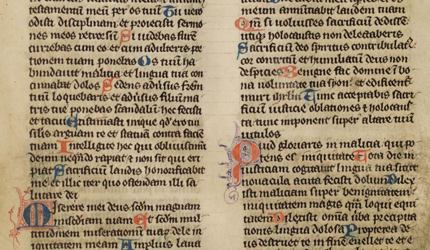 testamentum meū per os tuū Tu uero
odisti disciplinam: et proiecisti sermo
nes meos retrorsū Si uidebas furem
currebas cum eo et cum adulteris por
tionem tuam ponebas Os tuū ha
bundauit malitia et lingua tua con
cinnabat dolos Sedens aduersus frēm
tuū loquebaris et aduersus filiū ma
tris tue ponebas scandalū hec fecisti
et tacui Existimasti inique qđ ero tui
similis arguam te et statuam contra faciē
tuam Intelligite hec qui obliuiscimini
deum neqñdo rapiat et non sit qui eri
piat Sacrificiū laudis honorificabit
me et illic iter quo ostendam illi salu
tare dei
Miserere mei deus scđm magnam
misc̄diam tuam Et scđm mul
titudinem miserationū tuaꝝ dele in
iquitatem meam Amplius laua
meum annūtiabit laudem tuam
Qm̄ si uoluisses sacrificiū dedissē
utiqꝫ holocaustis non delectaberis
Sacrificiū deo spiritus contribulat᷒
cor contritū et humiliatū deus non
despicies Benigne fac domine ī bo
na uoluntate tua syon: et edificent᷑
muri ihrlm̄ Tunc acceptabis sacri
ficiū iusticie oblationes et holocaus
ta tunc imponent super altare tuū
uitulos
Quid gloriaris in malicia qui po
tens es iniquitate Tota die in
iusticiam cogitauit lingua tua sicut
nouacula acuta fecisti dolum Dilex
isti maliciam super benignitatem
iniquitatem magis qm̄ loqui equi
tatem Dilexisti omnia uerba precipita
tionis lingua dolosa Propterea de
us destruet te in finē euellet te et e